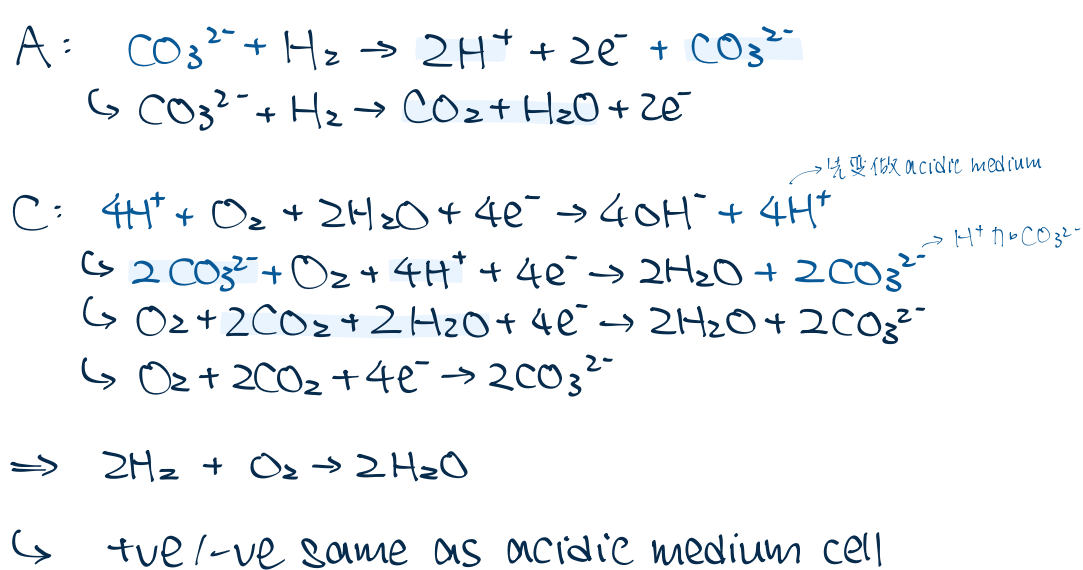 A: CO₃²⁻ + H₂ → 2H⁺ + 2e⁻ + CO₃²⁻
↪ CO₃²⁻ + H₂ → CO₂ + H₂O + 2e⁻
→ 先變做 acidic medium
C: 4H⁺ + O₂ + 2H₂O + 4e⁻ → 4OH⁻ + 4H⁺
→ H⁺ 加 CO₃²⁻
↪ 2CO₃²⁻ + O₂ + 4H⁺ + 4e⁻ → 2H₂O + 2CO₃²⁻
↪ O₂ + 2CO₂ + 2H₂O + 4e⁻ → 2H₂O + 2CO₃²⁻
↪ O₂ + 2CO₂ + 4e⁻ → 2CO₃²⁻
⇒ 2H₂ + O₂ → 2H₂O
↪ +ve/-ve same as acidic medium cell